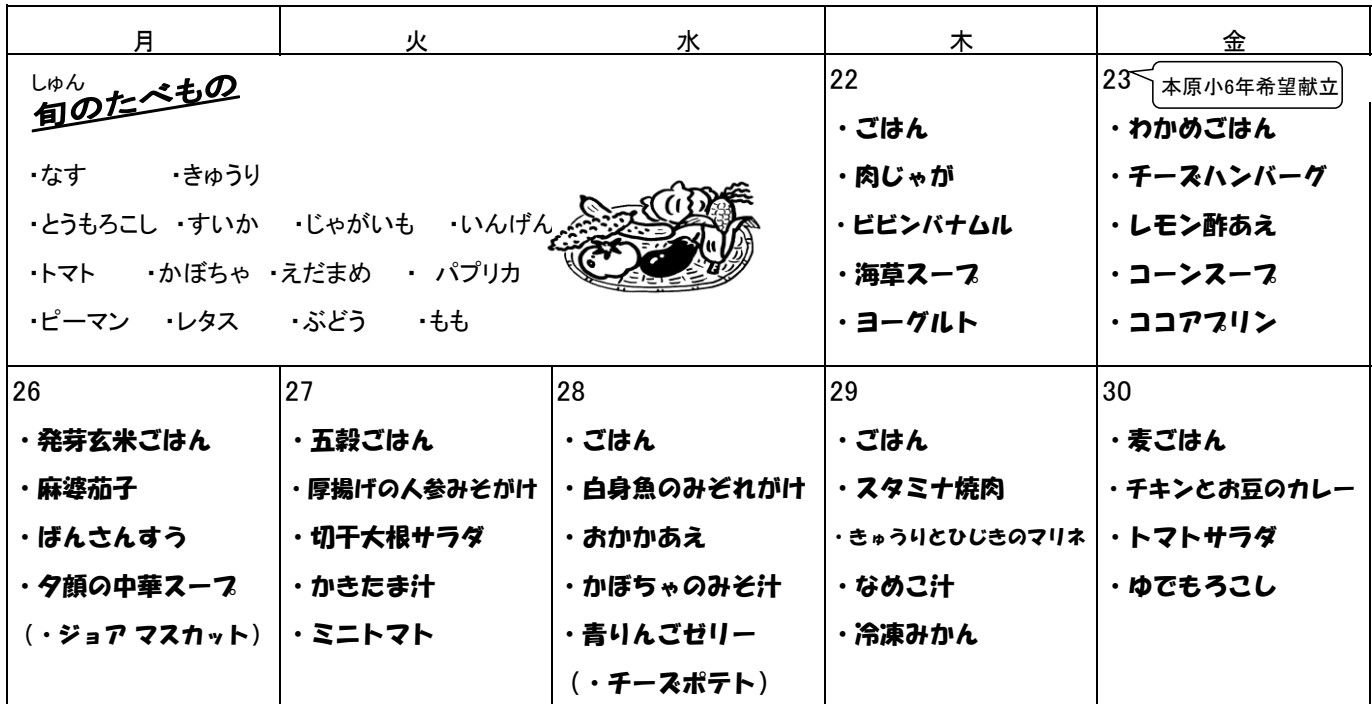 月 火 水 木 金
しゅん
旬のたべもの
・なす ・きゅうり
・とうもろこし ・すいか ・じゃがいも ・いんげん
・トマト ・かぼちゃ ・えだまめ ・ パプリカ
・ピーマン ・レタス ・ぶどう ・もも
22
・ごはん
・肉じゃが
・ビビンバナムル
・海草スープ
・ヨーグルト
23 本原小6年希望献立
・わかめごはん
・チーズハンバーグ
・レモン酢あえ
・コーンスープ
・ココアプリン
26
・発芽玄米ごはん
・麻婆茄子
・ばんさんすう
・夕顔の中華スープ
(・ジョア マスカット)
27
・五穀ごはん
・厚揚げの人参みそがけ
・切干大根サラダ
・かきたま汁
・ミニトマト
28
・ごはん
・白身魚のみぞれがけ
・おかかあえ
・かぼちゃのみそ汁
・青りんごゼリー
(・チーズポテト)
29
・ごはん
・スタミナ焼肉
・きゅうりとひじきのマリネ
・なめこ汁
・冷凍みかん
30
・麦ごはん
・チキンとお豆のカレー
・トマトサラダ
・ゆでもろこし